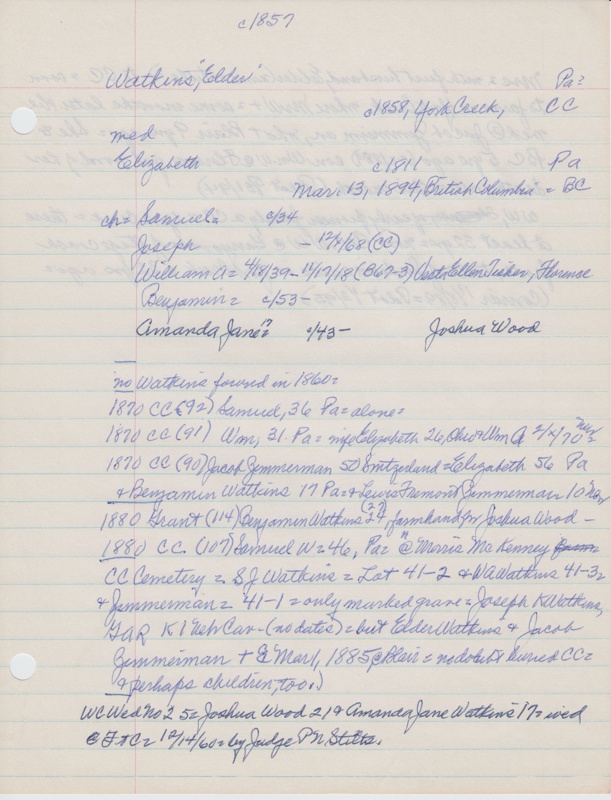 c1857
Watkins, "Elder" Pa=
c1858, York Creek, CC
= med
Elizabeth c1811 Pa
Mar. 13, 1894, British Columbia = BC
ch= Samuel= c/34
Joseph - 12/4/68 (CC)
William A= 4/18/39-11/17/18 (B67-3) Ellen Fisher, Florence
Benjamin= c/53-
Amanda Jane"= c/43- Joshua Wood
no Watkins found in 1860=
1870 CC (92) Samuel, 36 Pa= alone=
1870 CC (91) Wm, 31 Pa= wife Elizabeth 26, Ohio & Wm A 2/12/70 Neb=
1870 CC (90) Jacob Zimmerman 50 Switzerland = Elizabeth 56 Pa
& Benjamin Watkins 17 Pa= & Lewis Fremont Zimmerman 10 Neb
1880 Grant (114) Benjamin Watkins (27) 24, farmhand for Joshua Wood -
1880 CC. (107) Samuel W= 46, Pa= @ Morris McKenney
CC Cemetery = S.J Watkins = Lot 41-2 & WA Watkins 41-3=
& Zimmerman = 41-1 = only marked grave = Joseph K Watkins,
GAR K 1 Neb Cav - (no dates) = but Elder Watkins & Jacob
Zimmerman + Mar 1, 1885 @ Blair = no doubt buried CC=
& perhaps children, too.)
WC Wed No 2 5= Joshua Wood 21 & Amanda Jane Watkins 17= wed
@ Ft C= 12/14/60= by Judge P N Stilts.